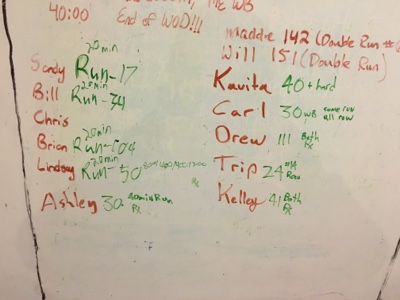 40:00 ME WB
End of WOD!!!
Maddie 142 (Double Run
Will 151 (Double Run)
20min
Sandy Run-17
20min
Bill Run-34
Chris
20min
Brian Run-104
20min
Lindsay Run-50
Ashley 30 Run
Rx
Kavita 40 + hard
Carl 30 WB some run
all row
Drew 111 Both
Rx
Trip 24 #14
Row
Kelley 41 Both
Rx